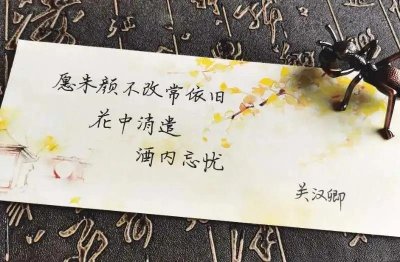 愿朱颜不改常依旧
花中消遣
酒内忘忧
关汉卿